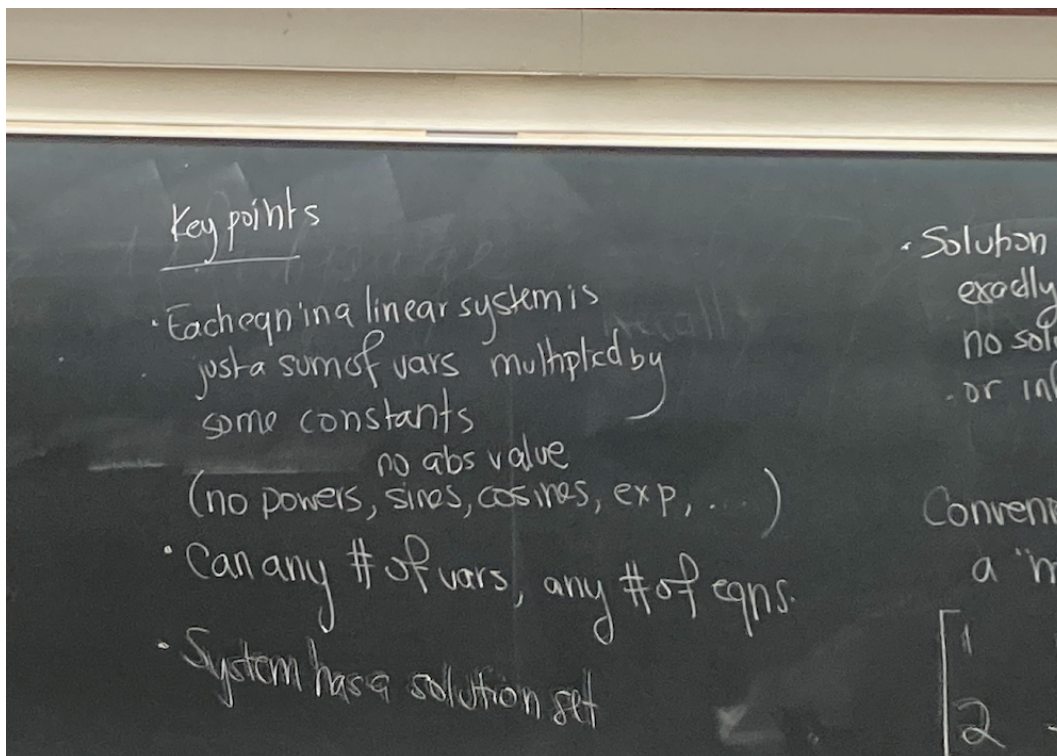 Key points
· Each eqn in a linear system is
just a sum of vars multiplied by
some constants
no abs value
(no powers, sines, cosines, exp, ....)
· Can any # of vars, any # of eqns.
· System has a solution set
· Solution
exactly
no sol
· or inf
Conven
a "m
1
2